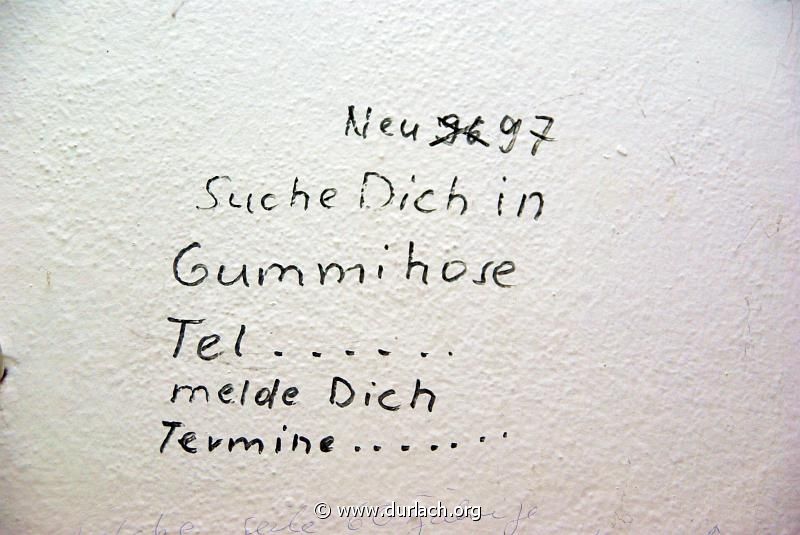 Neu 96 97
Suche Dich in
Gummihose
Tel......
melde Dich
Termine.......
© www.durlach.org